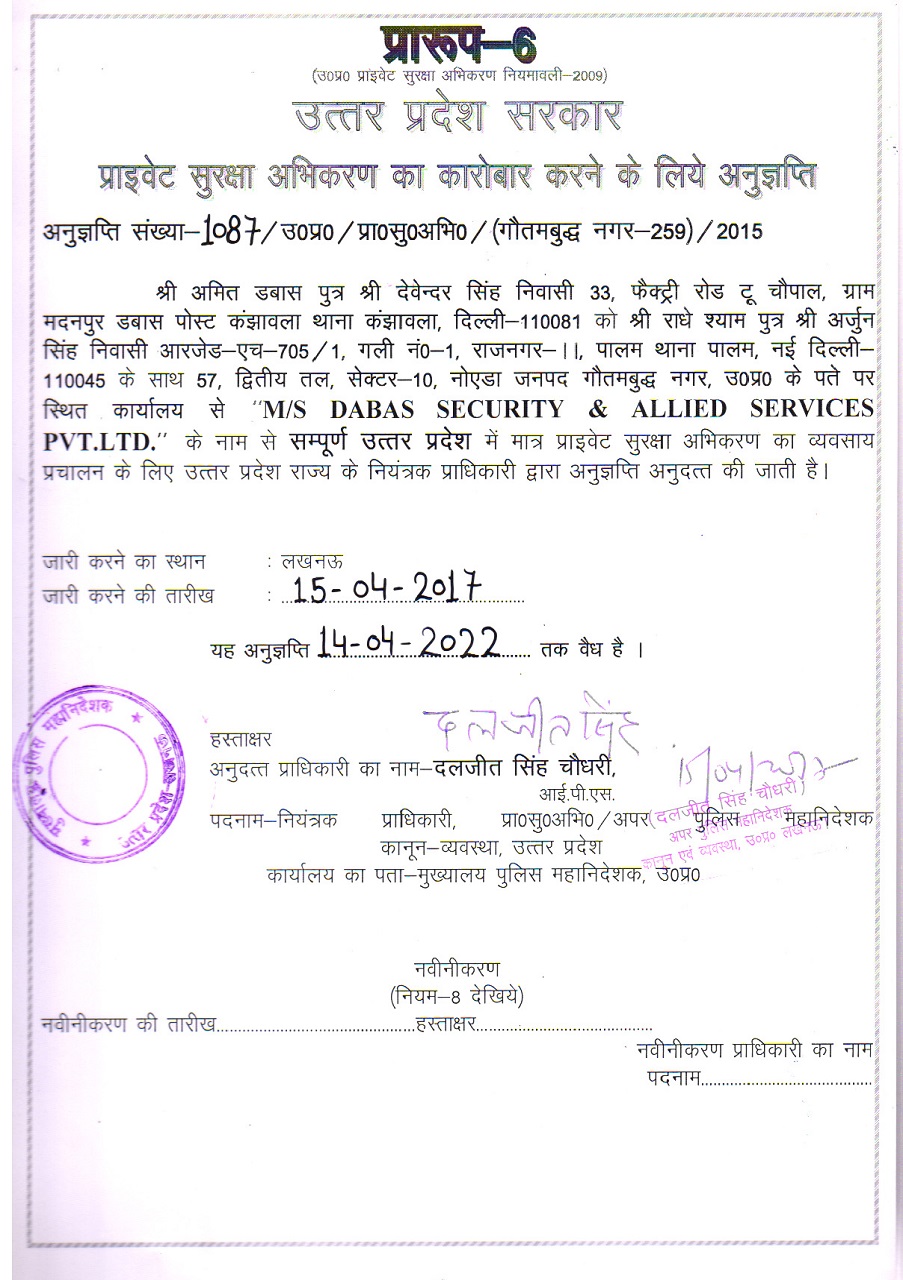 प्रारूप–6
(उ0प्र0 प्राइवेट सुरक्षा अभिकरण नियमावली–2009)
उत्तर प्रदेश सरकार
प्राइवेट सुरक्षा अभिकरण का कारोबार करने के लिये अनुज्ञप्ति
अनुज्ञप्ति संख्या–1087/उ0प्र0/प्रा0सु0अभि0/(गौतमबुद्ध नगर–259)/2015
श्री अमित डबास पुत्र श्री देवेन्दर सिंह निवासी 33, फैक्ट्री रोड टू चौपाल, ग्राम
मदनपुर डबास पोस्ट कंझावला थाना कंझावला, दिल्ली–110081 को श्री राधे श्याम पुत्र श्री अर्जुन
सिंह निवासी आरजेड–एच–705/1, गली नं0–1, राजनगर–।।, पालम थाना पालम, नई दिल्ली–
110045 के साथ 57, द्वितीय तल, सेक्टर–10, नोएडा जनपद गौतमबुद्ध नगर, उ0प्र0 के पते पर
स्थित कार्यालय से "M/S DABAS SECURITY & ALLIED SERVICES
PVT.LTD." के नाम से सम्पूर्ण उत्तर प्रदेश में मात्र प्राइवेट सुरक्षा अभिकरण का व्यवसाय
प्रचालन के लिए उत्तर प्रदेश राज्य के नियंत्रक प्राधिकारी द्वारा अनुज्ञप्ति अनुदत्त की जाती है।
जारी करने का स्थान : लखनऊ
जारी करने की तारीख : 15-04-2017
यह अनुज्ञप्ति 14-04-2022 तक वैध है ।
मुख्यालय पुलिस महानिदेशक
उत्तर प्रदेश
दलजीत सिंह
हस्ताक्षर
अनुदत्त प्राधिकारी का नाम–दलजीत सिंह चौधरी,
आई.पी.एस.
15/04/
(दलजीत सिंह चौधरी)
अपर पुलिस महानिदेशक
कानून एवं व्यवस्था, उ0प्र0 लखनऊ
पदनाम–नियंत्रक प्राधिकारी, प्रा0सु0अभि0/अपर पुलिस महानिदेशक
कानून–व्यवस्था, उत्तर प्रदेश
कार्यालय का पता–मुख्यालय पुलिस महानिदेशक, उ0प्र0
नवीनीकरण
(नियम–8 देखिये)
नवीनीकरण की तारीख..............................हस्ताक्षर..............................
नवीनीकरण प्राधिकारी का नाम
पदनाम..............................